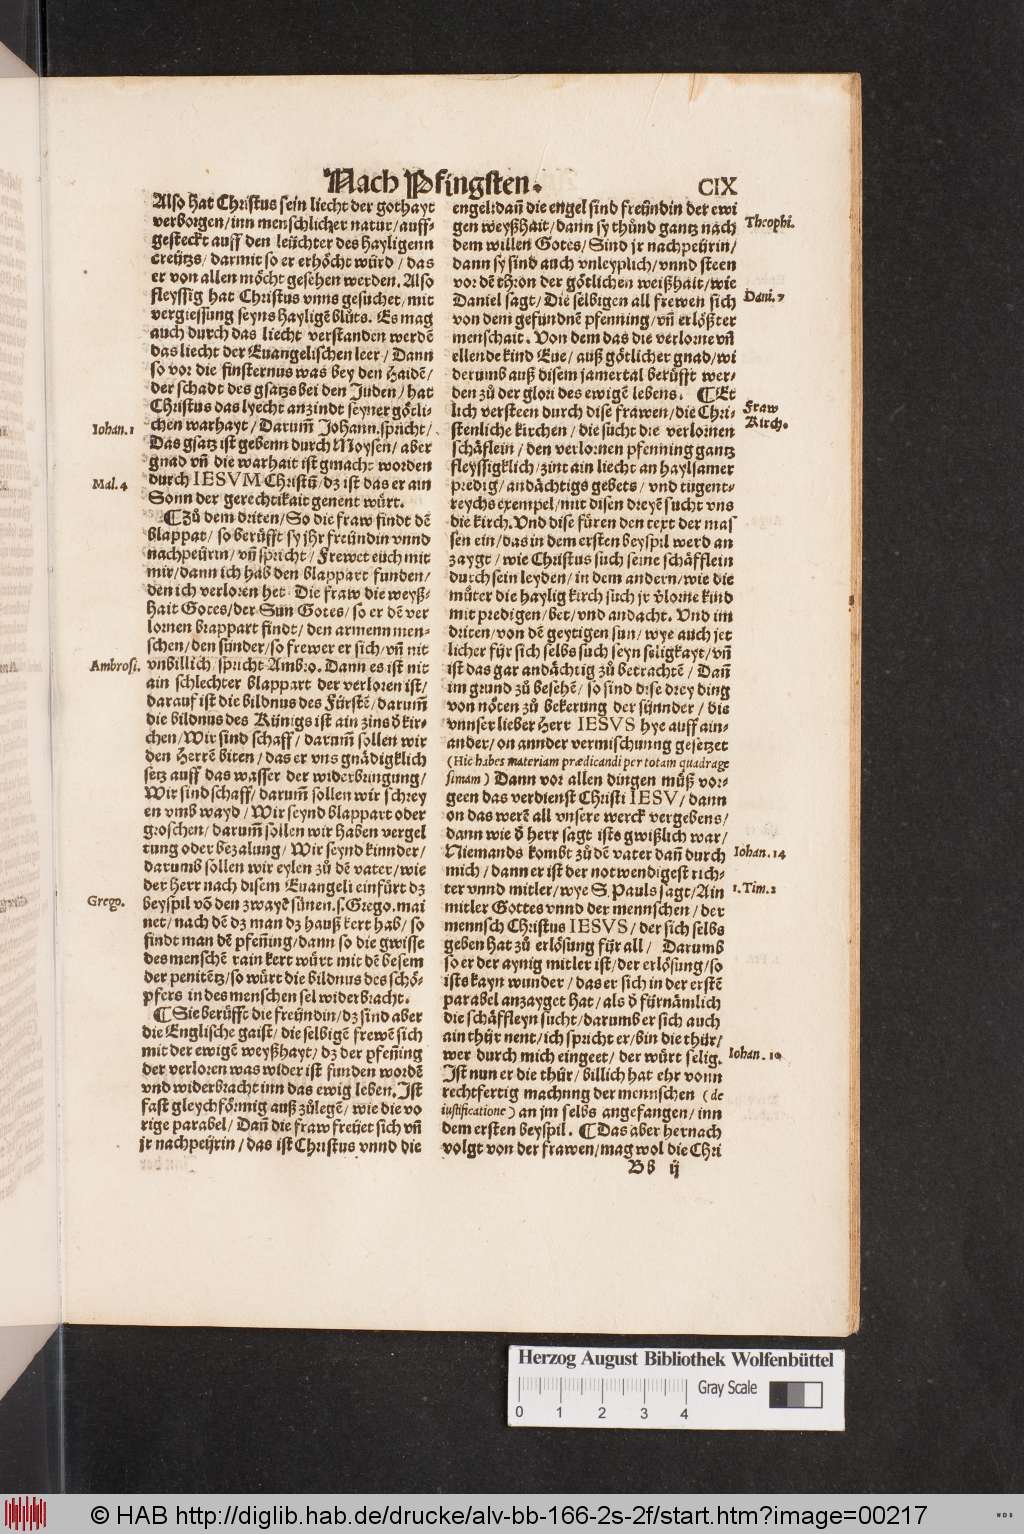 Nach Pfingsten.
CIX
Also hat Christus sein liecht der gothayt
verborgen/inn menschlicher natur/auff-
gesteckt auff den leüchter des hayligenn
creützs/darmit so er erhöcht würd/das
er von allen möcht gesehen werden. Also
fleyssig hat Christus vnns gesuchet/mit
vergiessung seyns hayligẽ blůts. Es mag
auch durch das liecht verstanden werdẽ
das liecht der Euangelischen leer/Dann
so vor die finsternus was bey den Haidẽ/
der schadt des gsatzs bei den Juden/hat
Christus das lyecht anzindt seyner götli-
chen warhayt/Darum̃ Johann. spricht/
Das gsatz ist gebenn durch Moysen/aber
gnad vñ die warhait ist gmacht worden
durch IESVM Christũ/dz ist das er ain
Sonn der gerechtikait genent würt.
¶Zů dem driten/So die fraw findt dẽ
blappat/so berüfft sy jhr freündin vnnd
nachpeürin/vñ spricht/Frewet euch mit
mir/dann ich hab den blappart funden/
den ich verloren het. Die fraw die weyß-
hait Gotes/der Sun Gotes/so er dẽ ver
lornen brappart findt/den armenn men-
schen/den sünder/so frewer er sich/vñ nit
vnbillich/spricht Ambro. Dann es ist nit
ain schlechter blappart der verloren ist/
darauf ist die bildnus des Fürstẽ/darum̃
die bildnus des Künigs ist ain zins ð kir-
chen/Wir sind schaff/darum̃ sollen wir
den Herrẽ biten/das er vns gnädigklich
setz auff das wasser der widerbringung/
Wir sind schaff/darum̃ sollen wir schrey
en vmb wayd/Wir seynd blappart oder
groschen/darum̃ sollen wir haben vergel
tung oder bezalung/Wir seynd kinnder/
darumb sollen wir eylen zů dẽ vater/wie
der Herr nach disem Euangeli einfürt dz
beyspil võ den zwayẽ sünen. s. Grego. mai
net/nach dẽ dz man dz hauß kert hab/so
findt man dẽ pfeñing/dann so die gwisse
des menschẽ rain kert würt mit dẽ besem
der penitẽtz/so würt die bildnus des schö-
pfers in des menschen sel widerbracht.
¶Sie berüfft die freündin/dz sind aber
die Englische gaist/die selbigẽ frewẽ sich
mit der ewigẽ weyßhayt/dz der pfeñing
der verloren was wider ist funden wordẽ
vnd widerbracht inn das ewig leben. Ist
fast gleychförmig auß zůlegẽ/wie die vo
rige parabel/Dañ die fraw freüet sich vñ
jr nachpeürin/das ist Christus vnnd die
Iohan. 1
Mal. 4
Ambrosi.
Grego.
engel: dañ die engel sind freündin der ewi
gen weyßhait/dann sy thůnd gantz nach
dem willen Gotes/Sind jr nachpeürin/
dann sy sind auch vnleyplich/vnnd steen
vor dẽ thron der götlichen weißhait/wie
Daniel sagt/Die selbigen all frewen sich
von dem gefundnẽ pfenning/vñ erlößter
menschait. Von dem das die verlorne vñ
ellende kind Eue/auß götlicher gnad/wi
derumb auß disem jamertal berüfft wer-
den zů der glori des ewigẽ lebens. ¶Et
lich versteen durch dise frawen/die Chri-
stenliche kirchen/die sucht die verlornen
schäflein/den verlornen pfenning gantz
fleyssigklich/zint ain liecht an haylsamer
predig/andächtigs gebets/vnd tugent-
reychs exempel/mit disen dreyẽ sucht vns
die kirch. Vnd dise füren den text der mas
sen ein/das in dem ersten beyspil werd an
zaygt/wie Christus such seine schäfflein
durch sein leyden/in dem andern/wie die
můter die haylig kirch such jr v̊lorne kind
mit predigen/bet/vnd andacht. Vnd im
driten/von dẽ geytigen sun/wye auch jet
licher für sich selbs such seyn seligkayt/vñ
ist das gar andächtig zů betrachtẽ/Dañ
im grund zů besehẽ/so sind dise drey ding
von nöten zů bekerung der sünnder/die
vnnser lieber Herr IESVS hye auff ain-
ander/on annder vermischunng gesetzet
(Hic habes materiam prædicandi per totam quadrage
simam) Dann vor allen dingen můß vor-
geen das verdienst Christi IESV/dann
on das werẽ all vnsere werck vergebens/
dann wie ð herr sagt ists gwißlich war/
Niemands kombt zů dẽ vater dañ durch
mich/dann er ist der notwendigest rich-
ter vnnd mitler/wye S. Pauls sagt/Ain
mitler Gottes vnnd der mennschen/der
mennsch Christus IESVS/der sich selbs
geben hat zů erlösung für all/Darumb
so er der aynig mitler ist/der erlösung/so
ists kayn wunder/das er sich in der erstẽ
parabel anzayget hat/als ð fürnämlich
die schäffleyn sucht/darumb er sich auch
ain thür nent/ich spricht er/bin die thür/
wer durch mich eingeet/der würt selig.
Ist nun er die thür/billich hat ehr vonn
rechtfertig machnng der mennschen (de
iustificatione) an jm selbs angefangen/inn
dem ersten beyspil. ¶Das aber hernach
volgt von der frawen/mag wol die Chri
Bb ij
Theophi.
Dani. 7
Fraw
Kirch.
Iohan. 14
1. Tim. 2
Iohan. 10
Herzog August Bibliothek Wolfenbüttel
Gray Scale
0 1 2 3 4
© HAB http://diglib.hab.de/drucke/alv-bb-166-2s-2f/start.htm?image=00217